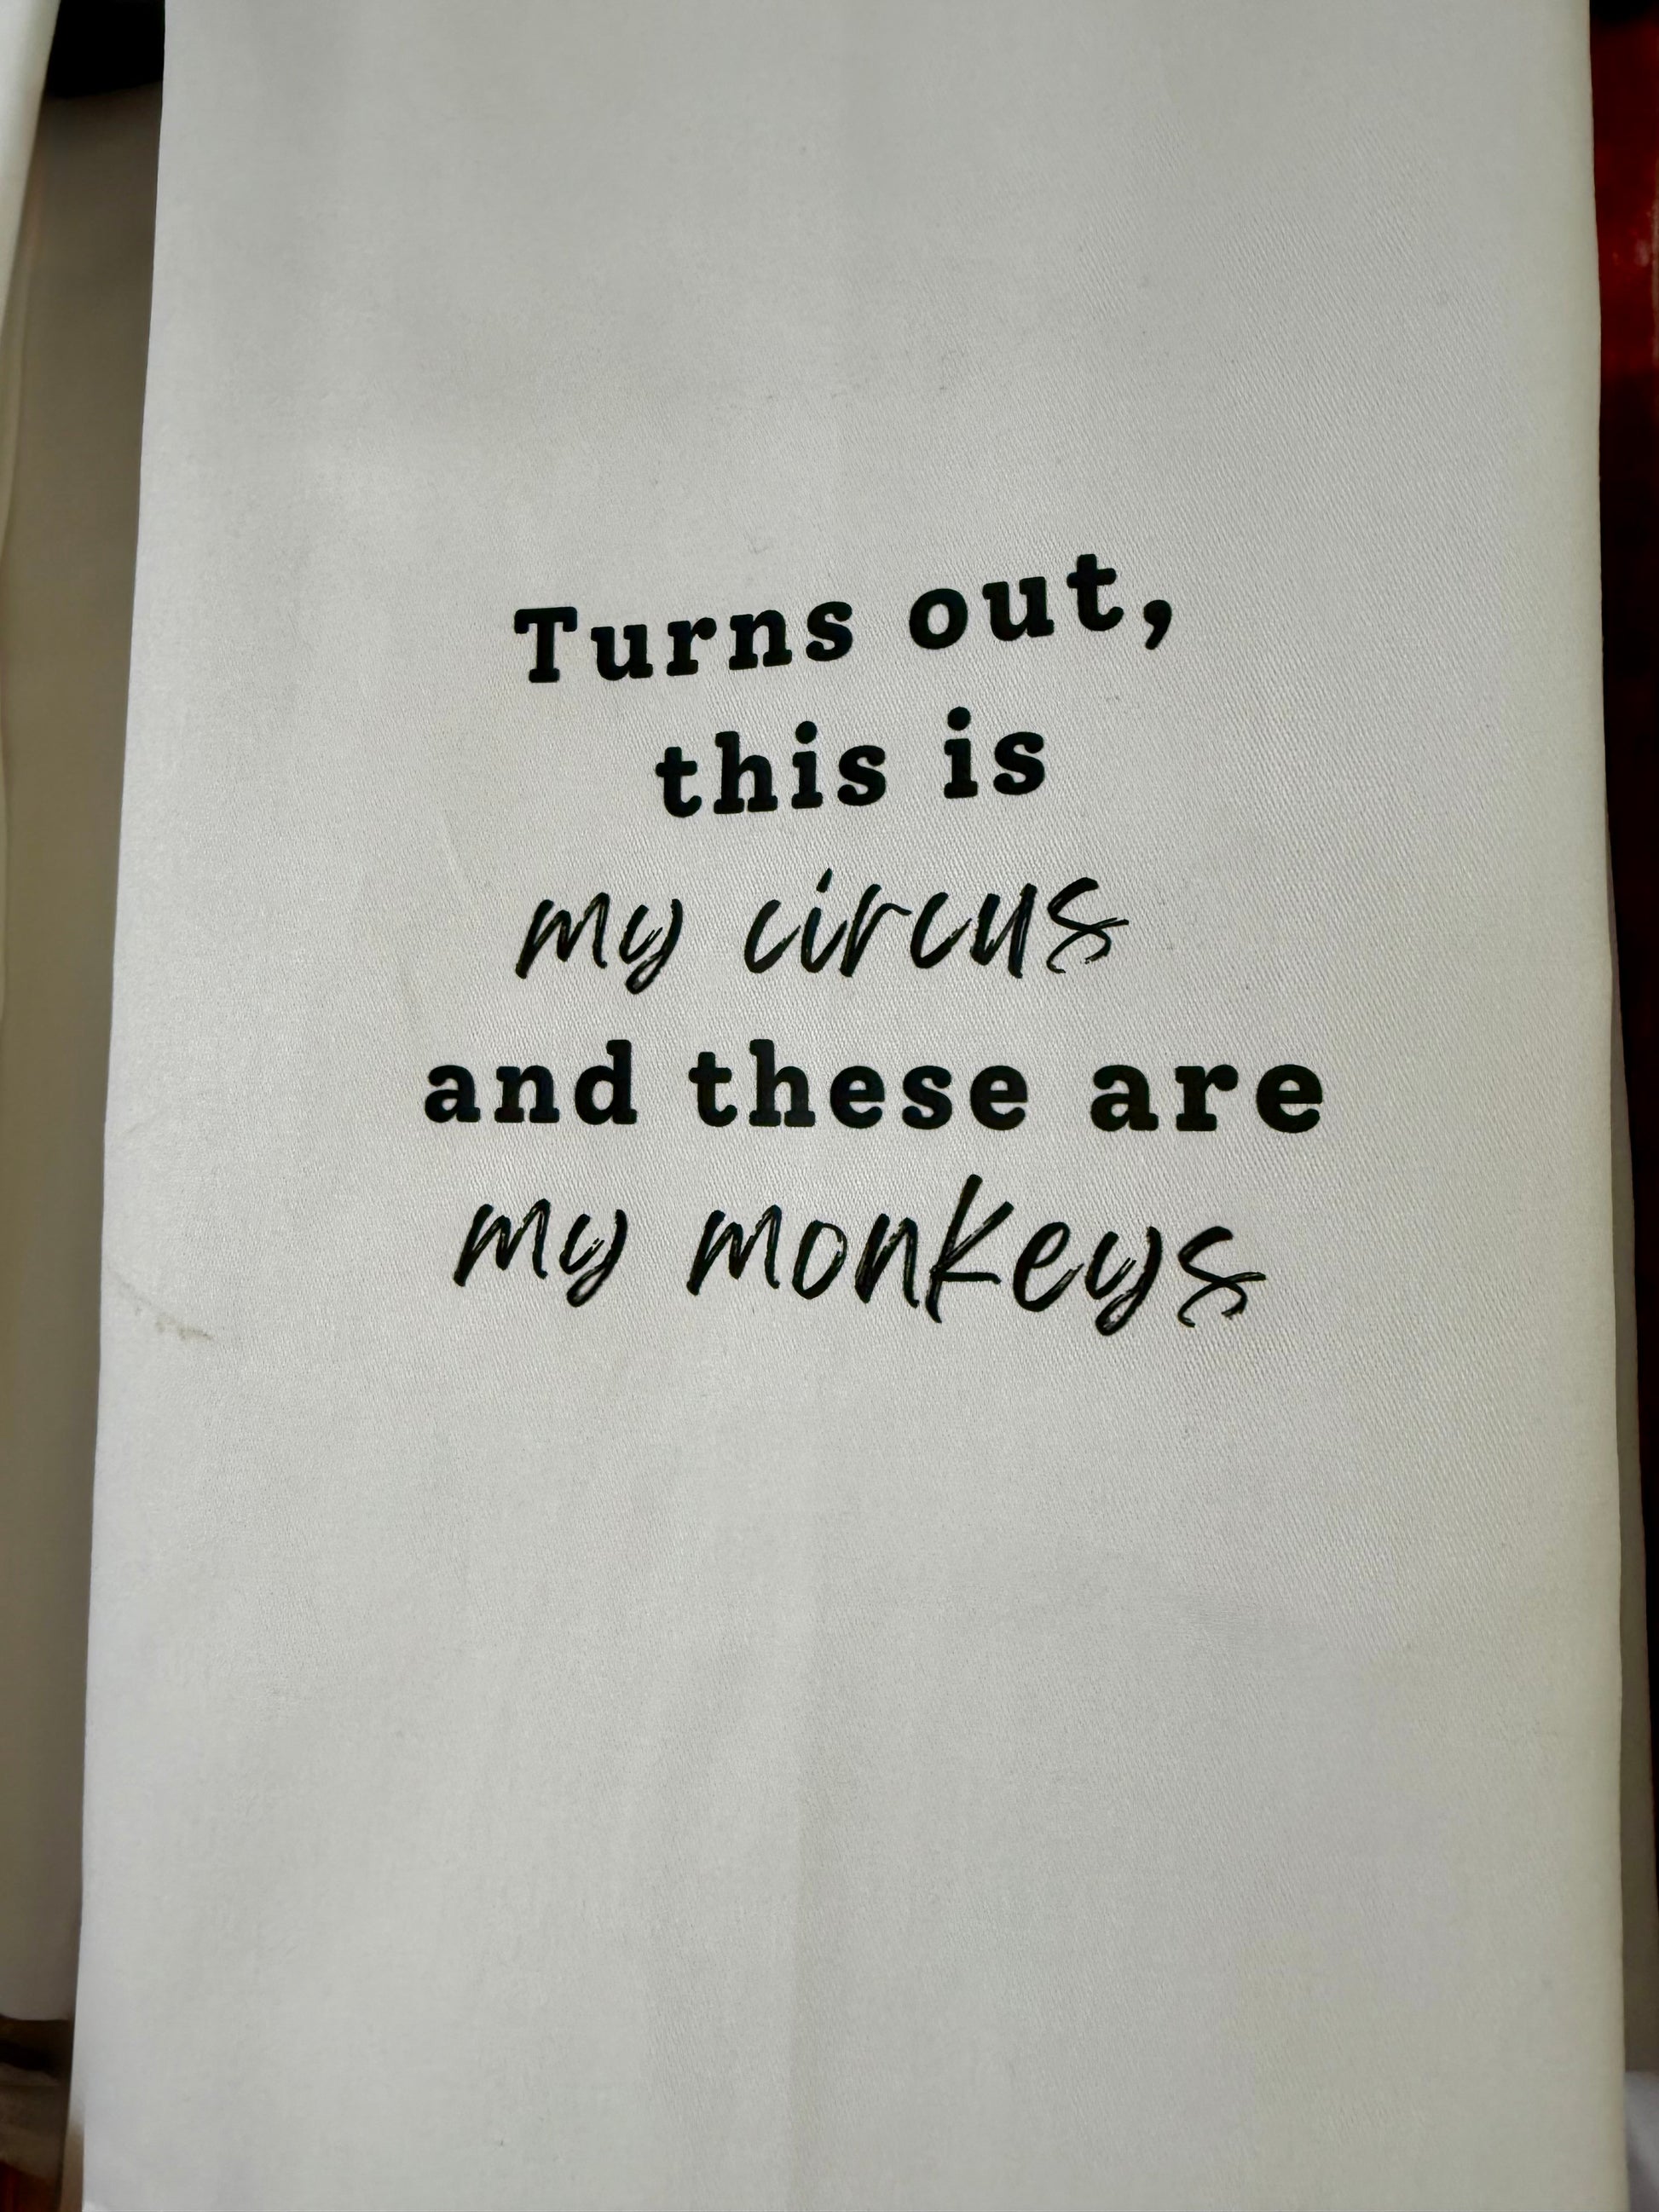 Turns out,
this is
my circus
and these are
my monkeys